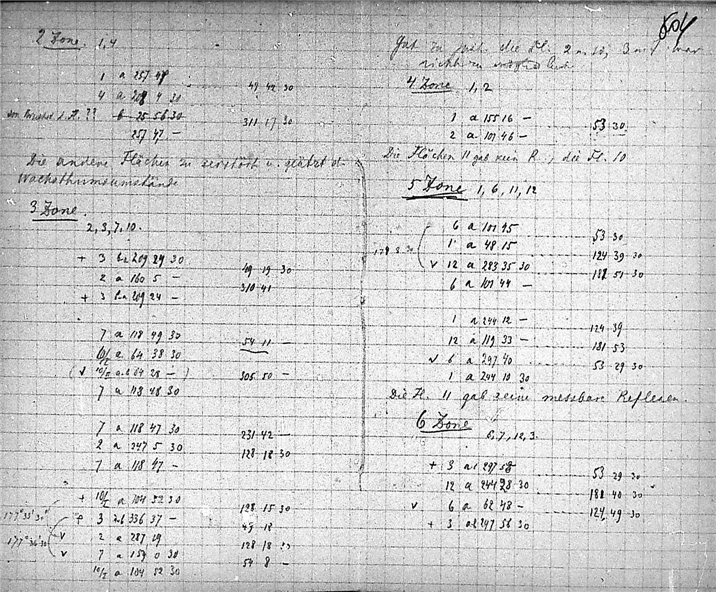 2 Zone. 1,4
1 a 257 47
4 a 208 4 30
49 42 30
6 25 56 30
311 17 30
257 47 —
Die andere Flächen zu zerstört u. geätzt d.
Wachsthumsumstände
3 Zone.
2, 3, 7, 10.
+ 3 209 24 30
49 19 30
2 a 160 5 —
310 41
+ 3 209 24 —
7 a 118 49 30
54 11 —
10/I a 64 38 30
(v 10/I a.b 64 28 —)
305 50 —
7 a 118 48 30
7 a 118 47 30
231 42 —
2 a 247 5 30
128 18 30
7 a 118 47 —
+ 10/I a 104 52 30
128 15 30
177° 33' 30"
3 a.b 336 37 —
49 18
v 2 a 287 19
128 18
177° 36' 30
v 7 a 159 0 30
54 8 —
10/I a 104 52 30
504
Gut zu die Fl. 2 10, 3 war
4 Zone 1, 2
1 a 155 16 —
53 30
2 a 101 46 —
Die Flächen 11 gab kein R., die Fl. 10
5 Zone 1, 6, 11, 12
6 a 101 45
53 30
1 a 48 15
124 39 30
v 12 a 283 35 30
181 51 30
6 a 101 44 —
1 a 244 12 —
124 39
12 a 119 33 —
181 53
v 6 a 297 40
53 29 30
1 a 244 10 30
Die Fl. 11 gab keine messbare Reflexen.
6 Zone
6, 7, 12, 3.
+ 3 297 58
53 29 30
12 a 244 28 30
181 40 30
v 6 a 62 48 —
124 49 30
+ 3 297 56 30